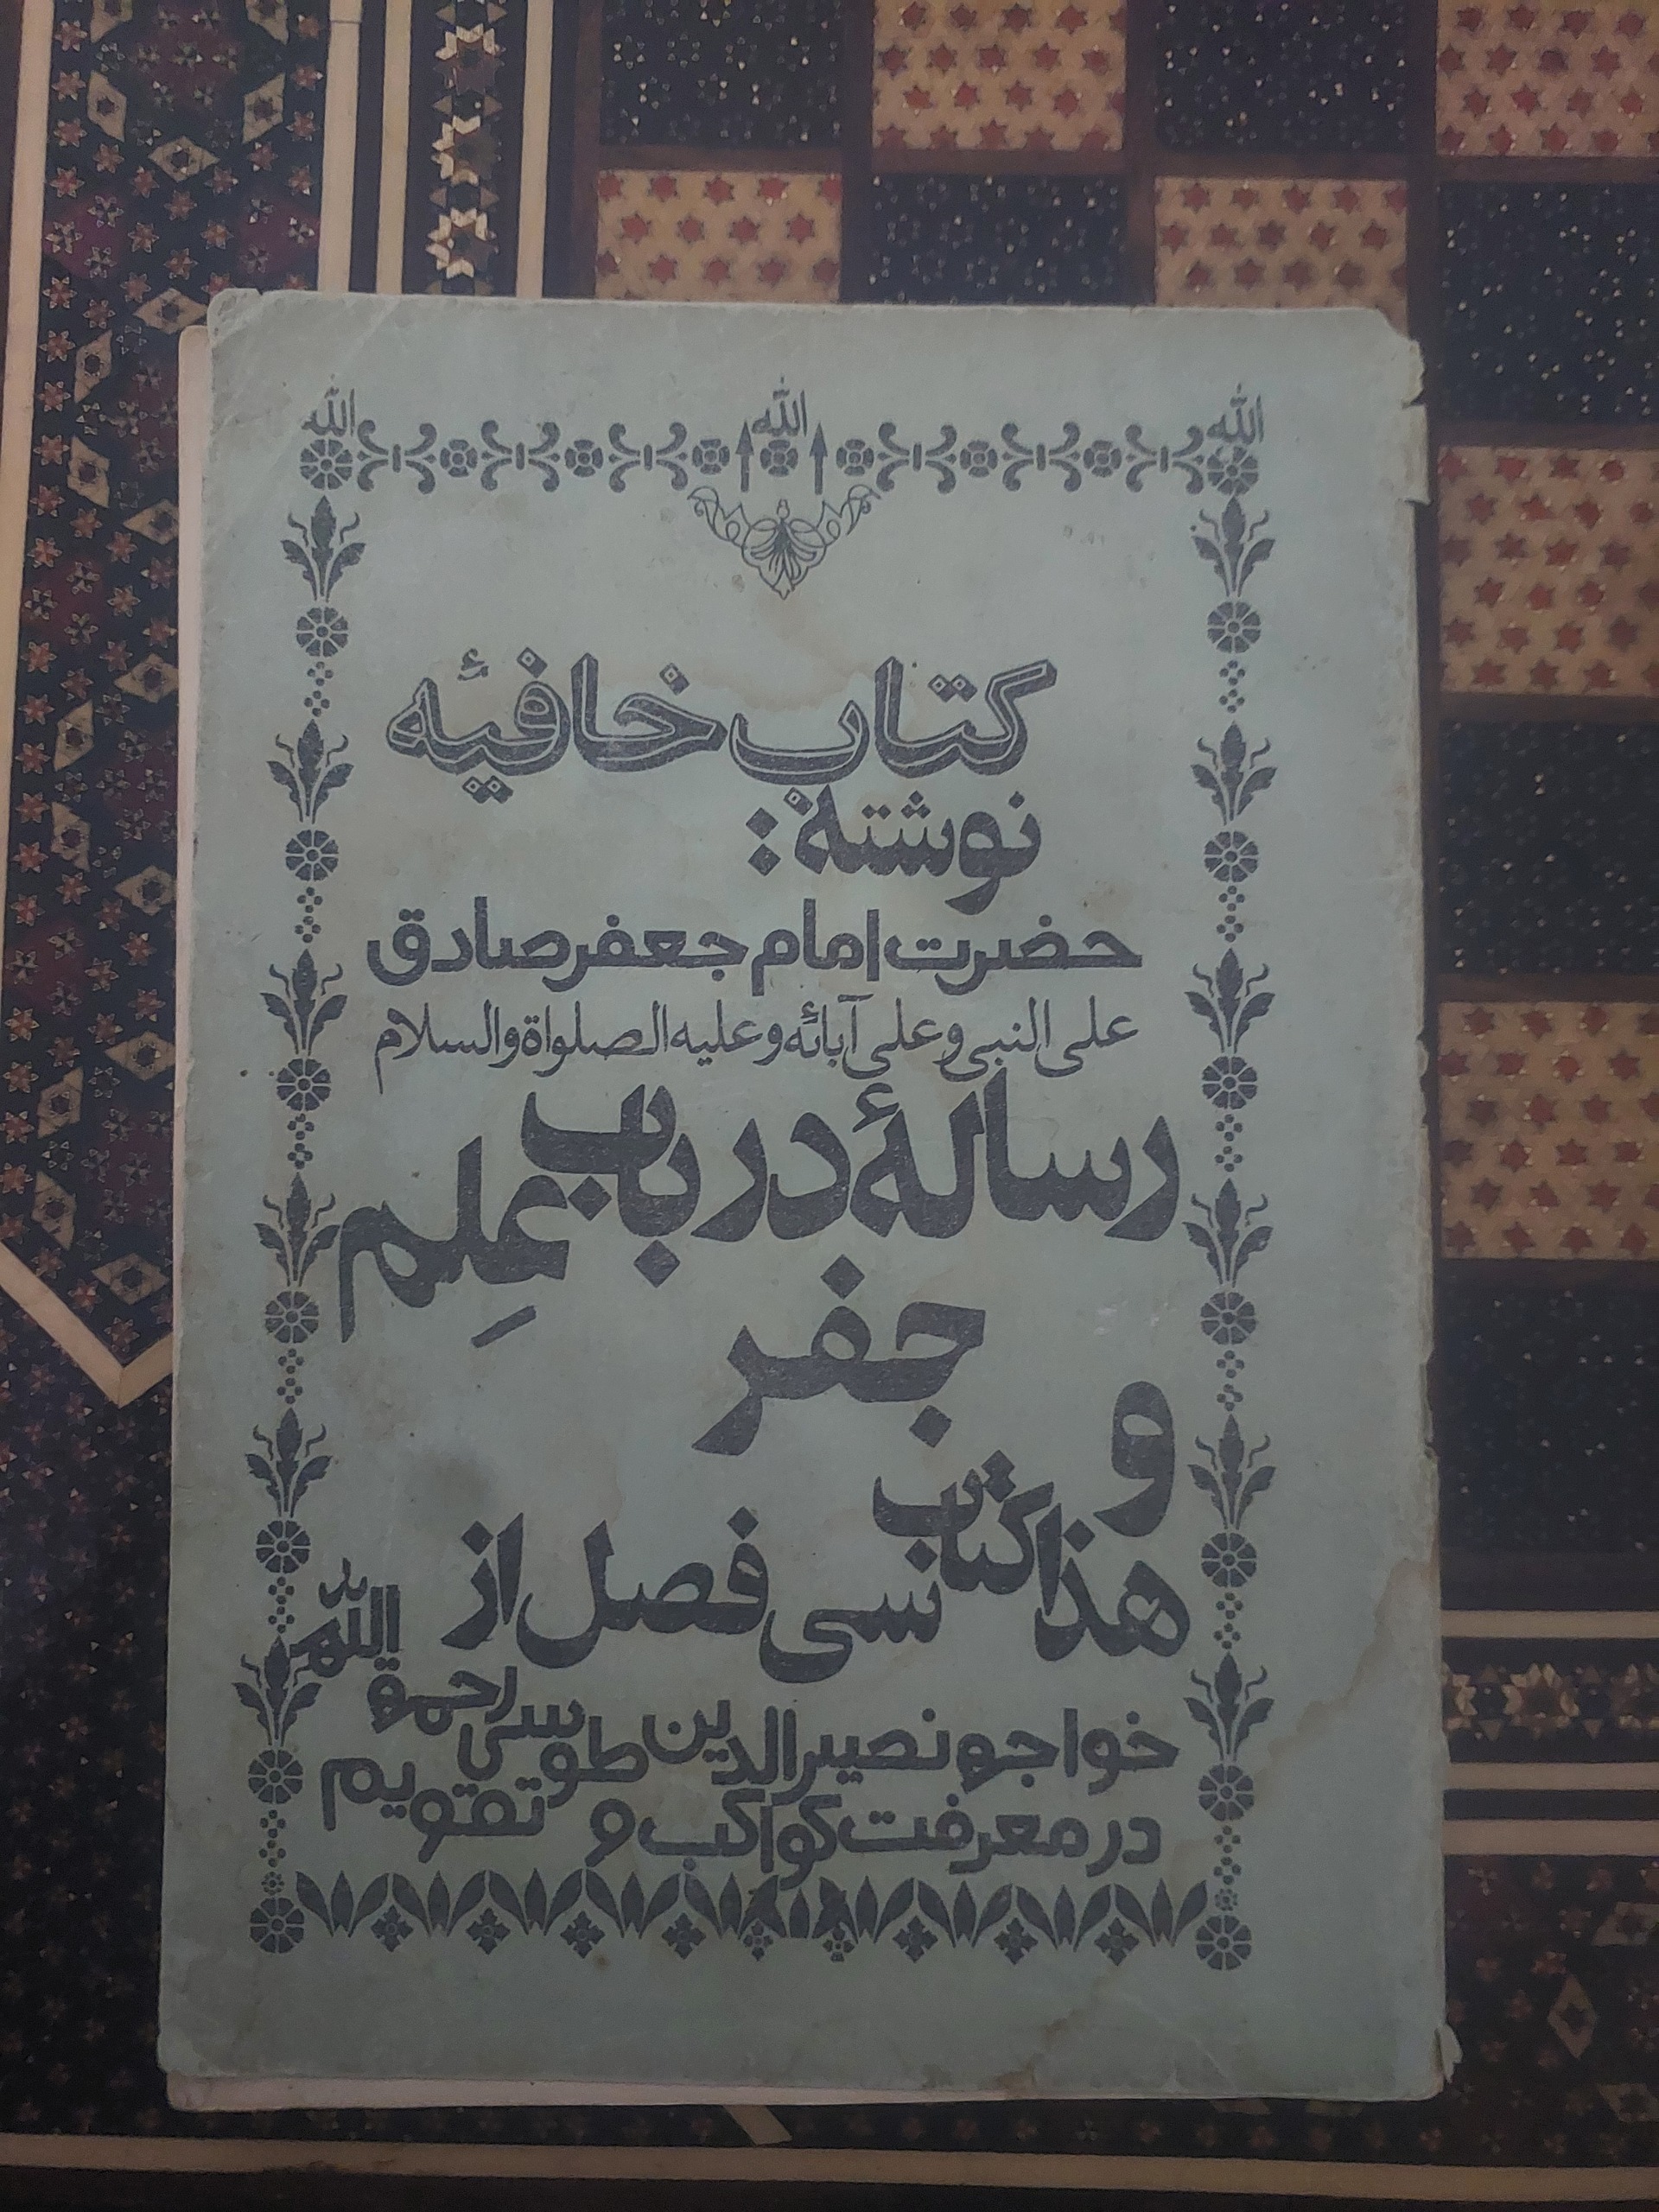 الله الله الله
کتاب خافیهٔ
نوشته:
حضرت امام جعفر صادق
علی النبی و علی آبائه و علیه الصلواة والسلام
رسالهٔ در باب عِلم
جفر
و
هذا کتاب سی فصل از
خواجه نصیر الدین طوسی رحمة الله
در معرفت کواکب و تقویم